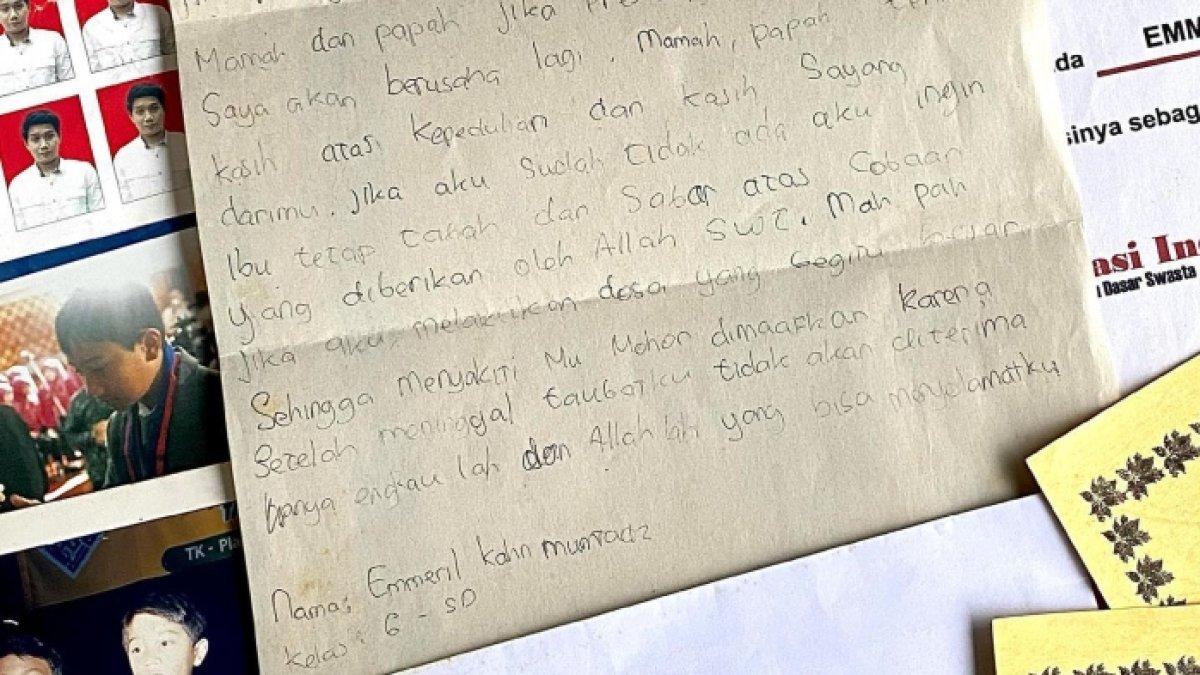 Mamah dan papah jika
Saya akan berusaha lagi. Mamah, papah
kasih atas kepedulian dan kasih Sayang
darimu. Jika aku Sudah tidak ada aku ingin
Ibu tetap tabah dan Sabar atas Cobaan
yang diberikan oloh Allah SWT. Mah pah
Jika aku melakukan dosa yang begitu besar
Sehingga menyakiti Mu Mohon dimaafkan karena
Setelah meninggal taubatku tidak akan diterima
hanya engkau lah dan Allah lah yang bisa menyelamatku
Nama: Emmeril kahn mumtadz
kelas: 6 - SD
da EMM
sinya sebag
asi In
Dasar Swasta
TK - Pla